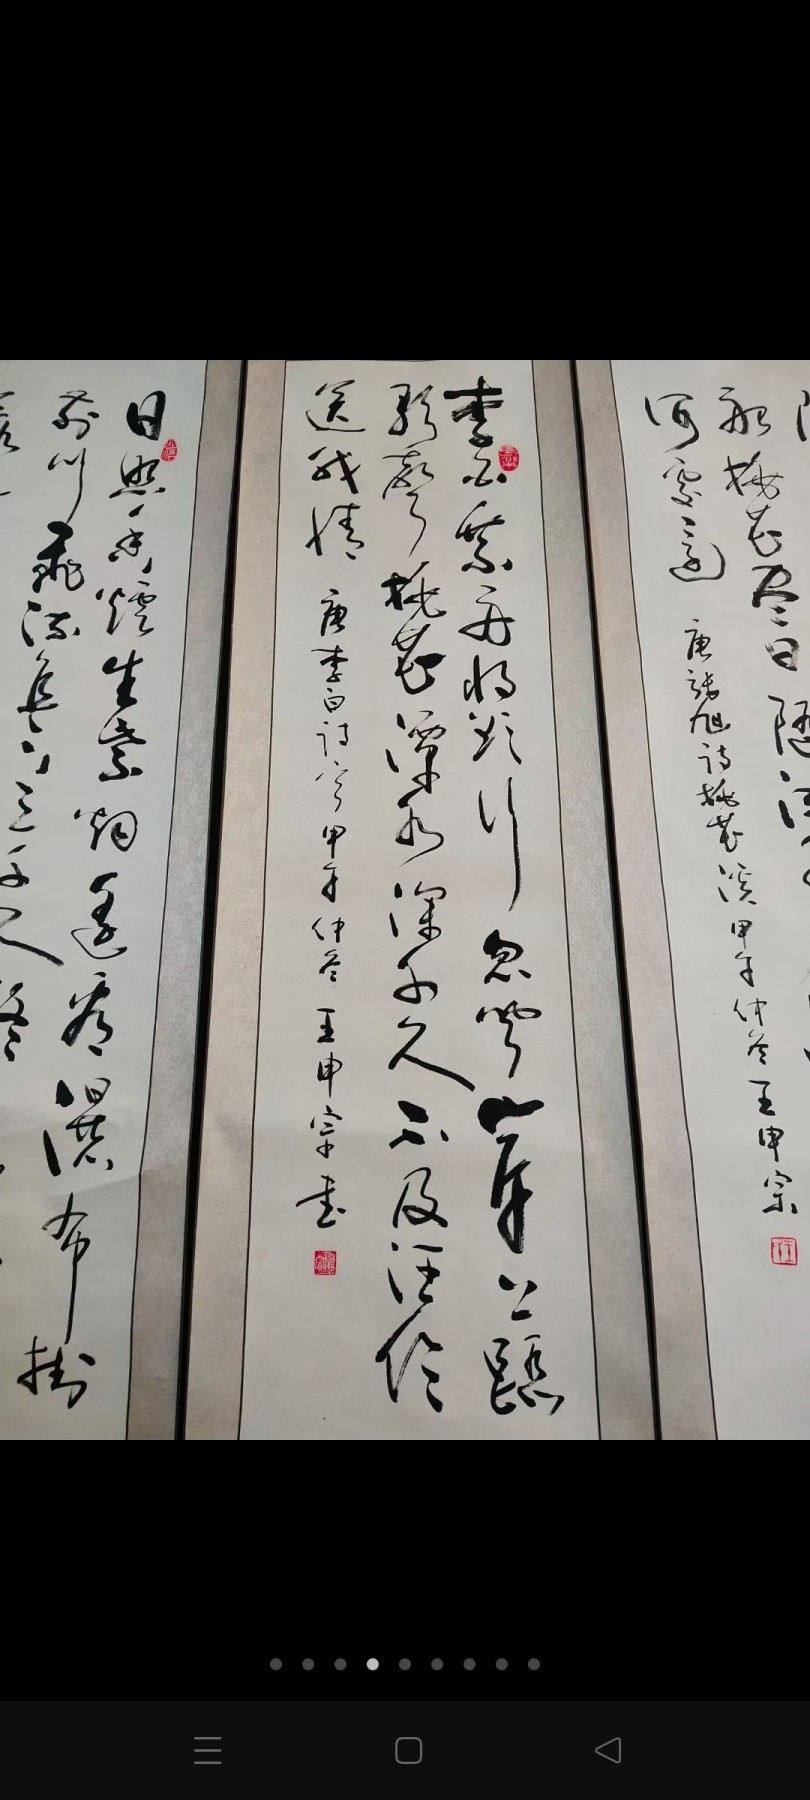 船桃花尽日随流
何處邊 唐張旭詩桃花溪 甲午仲冬 王申宗
李白乘舟将欲行忽闻岸上踏
歌聲桃花潭水深千尺不及汪伦
送我情 唐李白詩 甲午仲冬 王申宗書
日照香爐生紫烟遥看瀑布掛
前川飛流直下三千尺疑